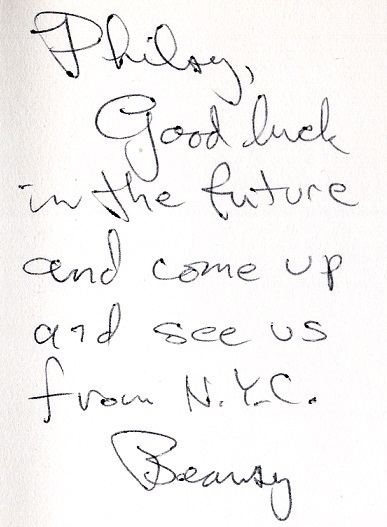 Philsy,
Good luck
in the future
and come up
and see us
from N.Y.C.
Beansy